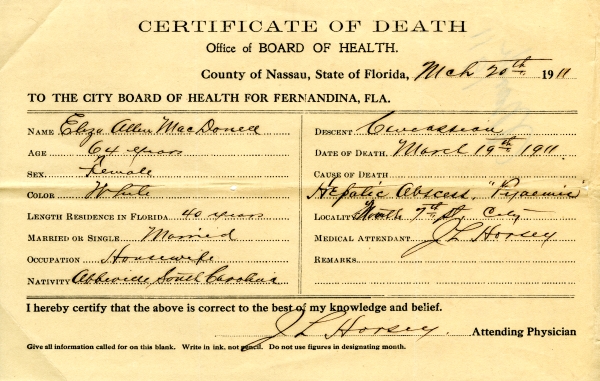 CERTIFICATE OF DEATH
Office of BOARD OF HEALTH.
County of Nassau, State of Florida, Mch 20th 1911
TO THE CITY BOARD OF HEALTH FOR FERNANDINA, FLA.
NAME Eliza Allen MacDonell
AGE 64 years
SEX. Female
COLOR White
LENGTH RESIDENCE IN FLORIDA 40 years
MARRIED OR SINGLE Married
OCCUPATION Housewife
NATIVITY Abbeville South Carolina
DESCENT Caucassian
DATE OF DEATH. March 19th 1911.
CAUSE OF DEATH
Hepatic Abscess, "Pyaemic"
LOCALITY North 7th St. City
MEDICAL ATTENDANT J L Horsey
REMARKS
I hereby certify that the above is correct to the best of my knowledge and belief.
J L Horsey. Attending Physician
Give all information called for on this blank. Write in ink, not pencil. Do not use figures in designating month.